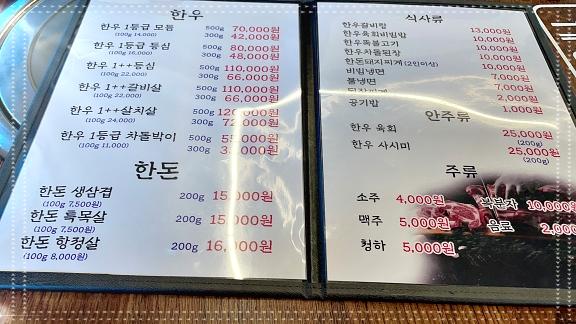 한우
한우 1등급 모듬 500g 70,000원
(100g 14,000) 300g 42,000원
한우 1등급 등심 500g 80,000원
(100g 16,000) 300g 48,000원
한우 1++등심 500g 110,000원
(100g 22,000) 300g 66,000원
한우 1++갈비살 500g 110,000원
(100g 22,000) 300g 66,000원
한우 1++살치살 500g 120,000원
(100g 24,000) 300g 72,000원
한우 1등급 차돌박이 500g 55,000원
(100g 11,000) 300g 33,000원
한돈
한돈 생삼겹 200g 15,000원
(100g 7,500원)
한돈 흑목살 200g 15,000원
(100g 7,500원)
한돈 항정살 200g 16,000원
(100g 8,000원)
식사류
한우갈비탕 13,000원
한우육회비빔밥 10,000원
한우뚝불고기 10,000원
한우차돌된장 10,000원
한돈돼지찌개(2인이상) 10,000원
비빔냉면 7,000원
물냉면 7,000원
2,000원
공기밥 1,000원
안주류
한우 육회 25,000원
(200g)
한우 사시미 25,000원
(200g)
주류
소주 4,000원 복분자 10,000원
맥주 5,000원 음료 2,000
청하 5,000원